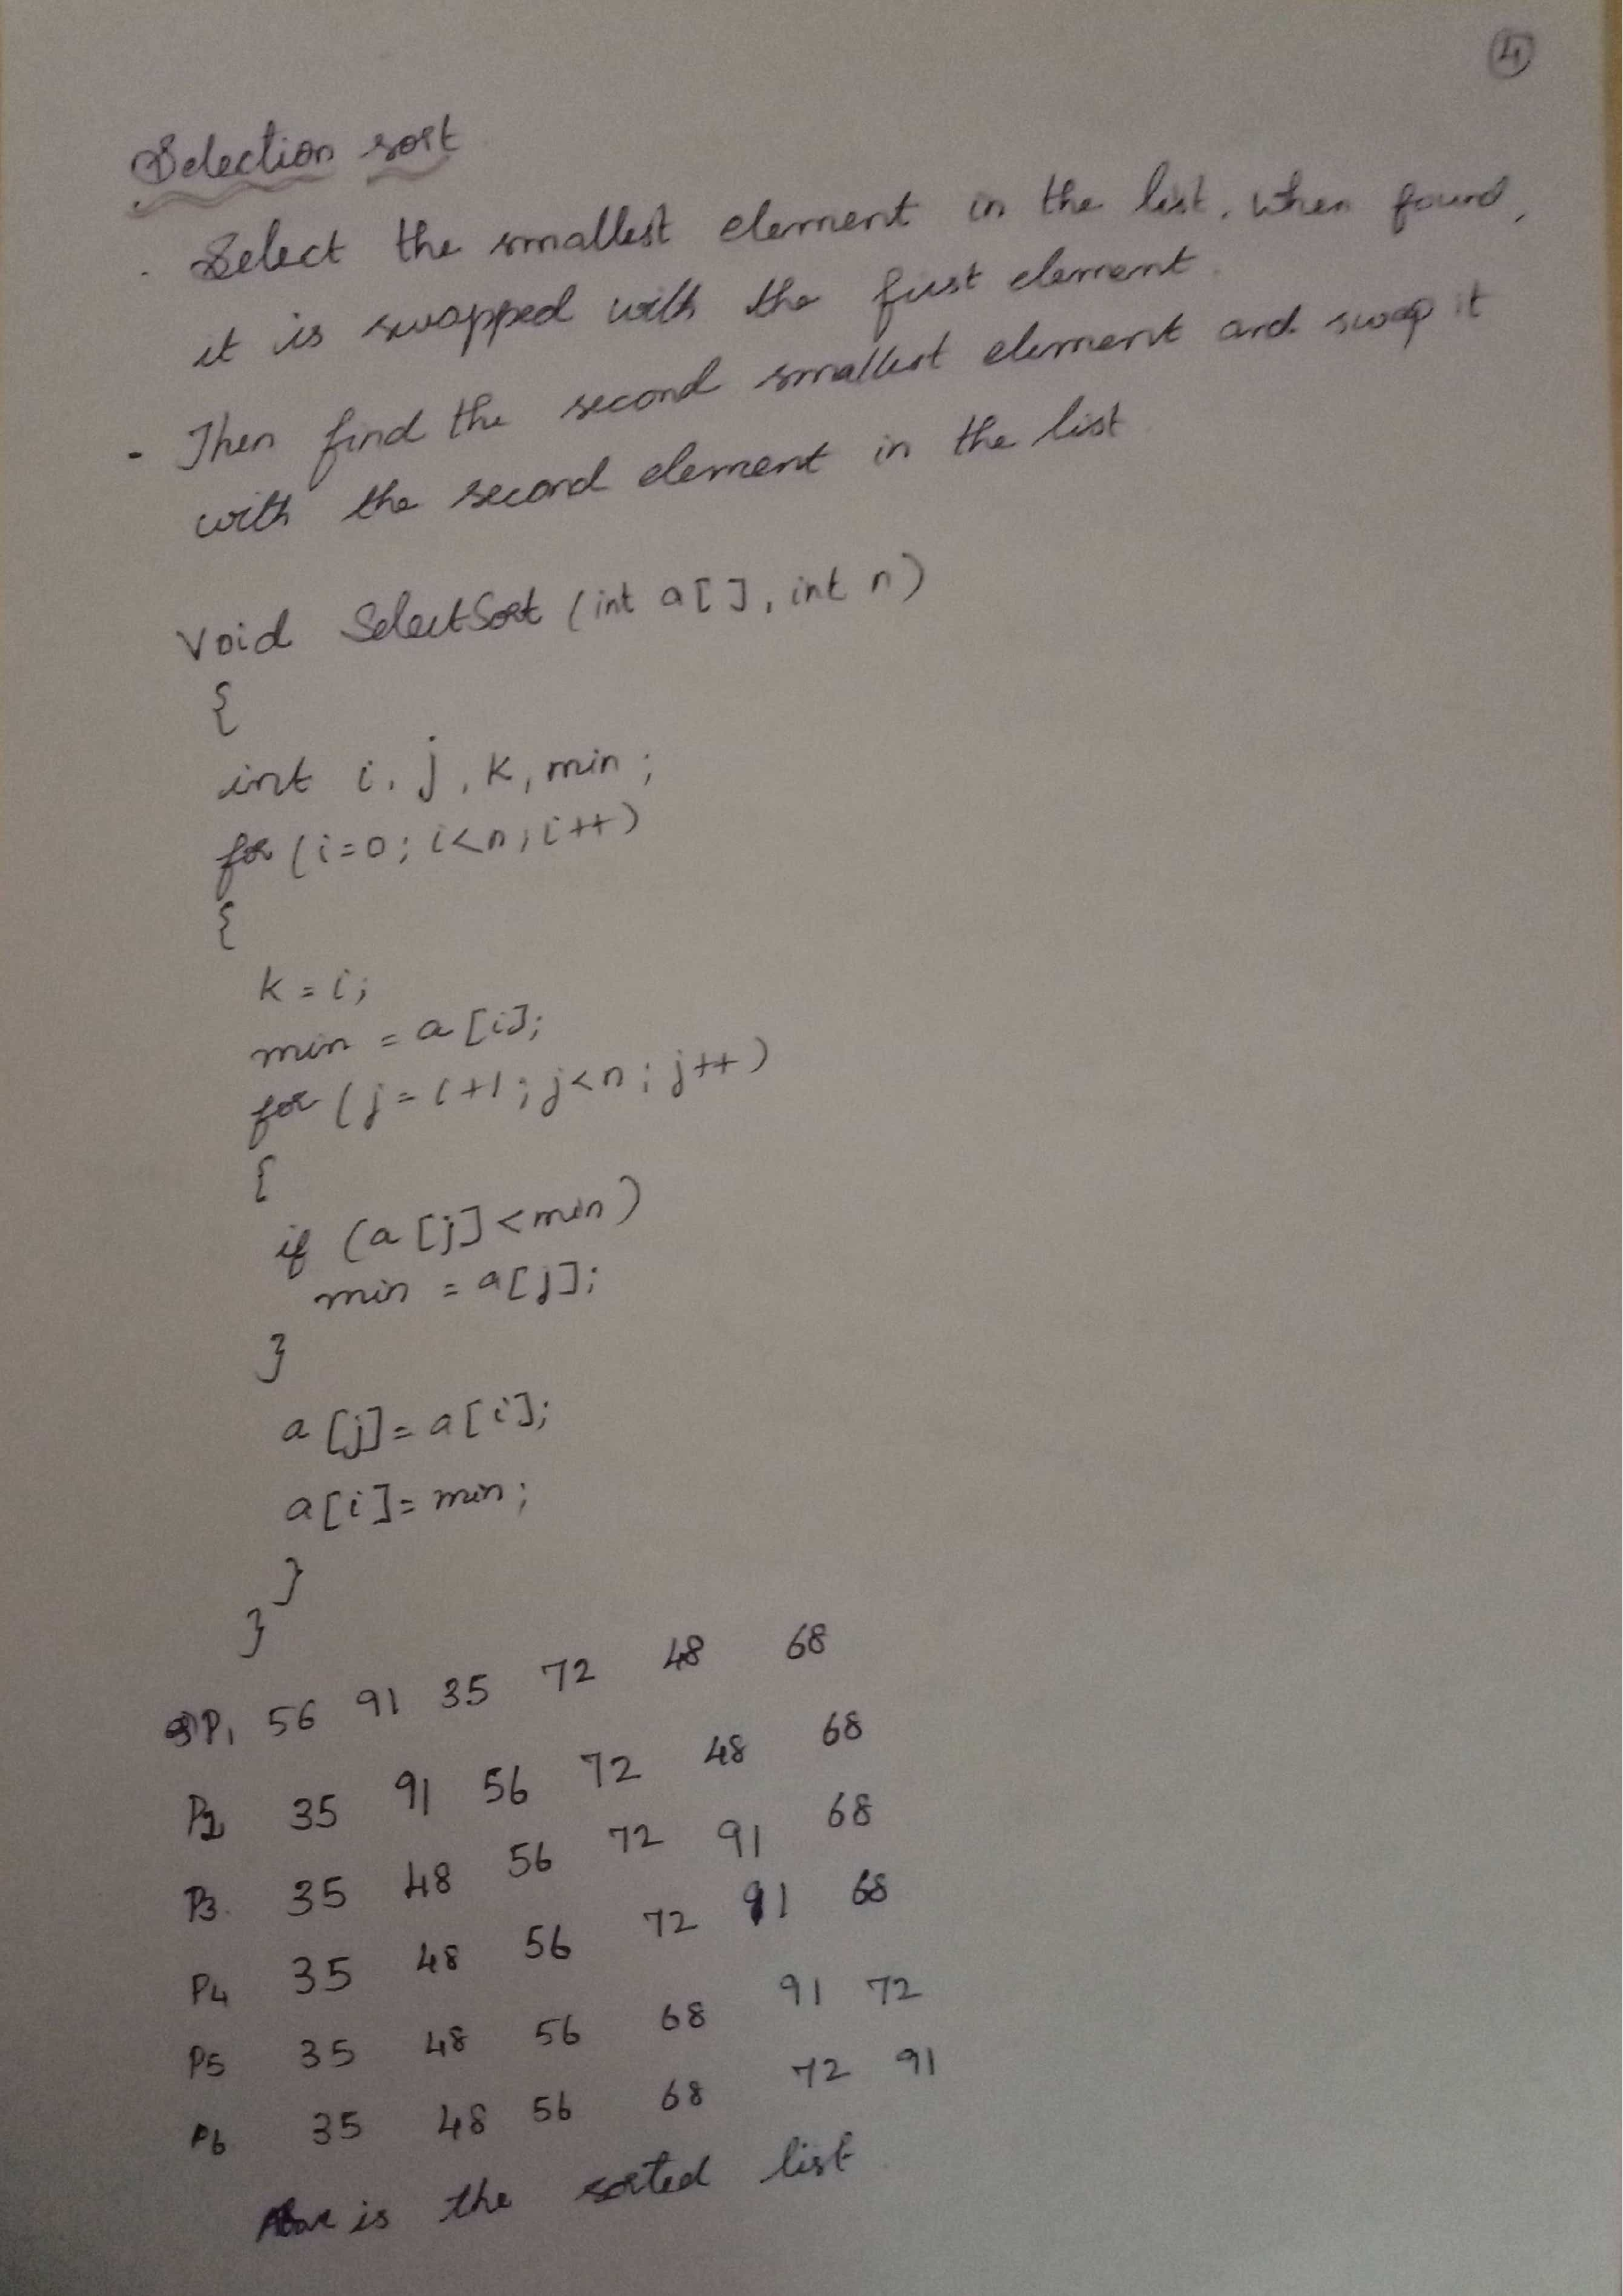 4
Selection sort
. Select the smallest element in the list. When found,
it is swapped with the first element.
- Then find the second smallest element and swap it
with the second element in the list.
Void SelectSort (int a[], int n)
{
int i, j, k, min;
for (i=0; i<n; i++)
{
k = i;
min = a[i];
for (j=i+1; j<n; j++)
{
if (a[j]<min)
min = a[j];
}
a[j]=a[i];
a[i]=min;
}
}
P1 56 91 35 72 48 68
P2 35 91 56 72 48 68
P3. 35 48 56 72 91 68
P4 35 48 56 72 91 68
P5 35 48 56 68 91 72
P6 35 48 56 68 72 91
Above is the sorted list.